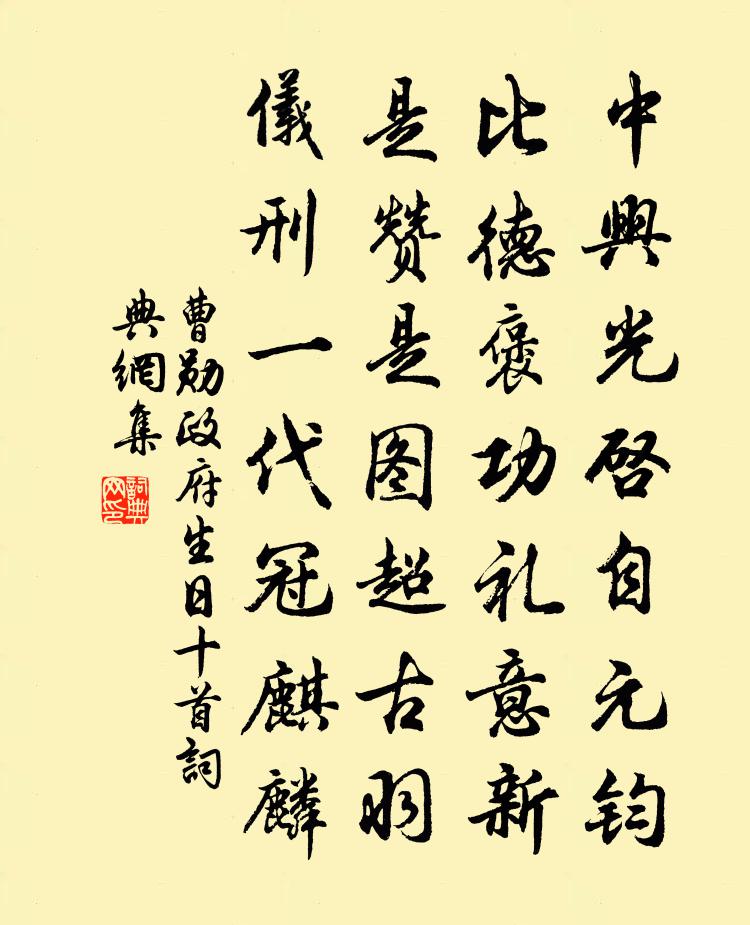 中興光啓自元鈞
比德褒功礼意新
是贊是图超古明
儀刑一代冠麒麟
曹勛政府生日十首詞
典網集
詞典
网印